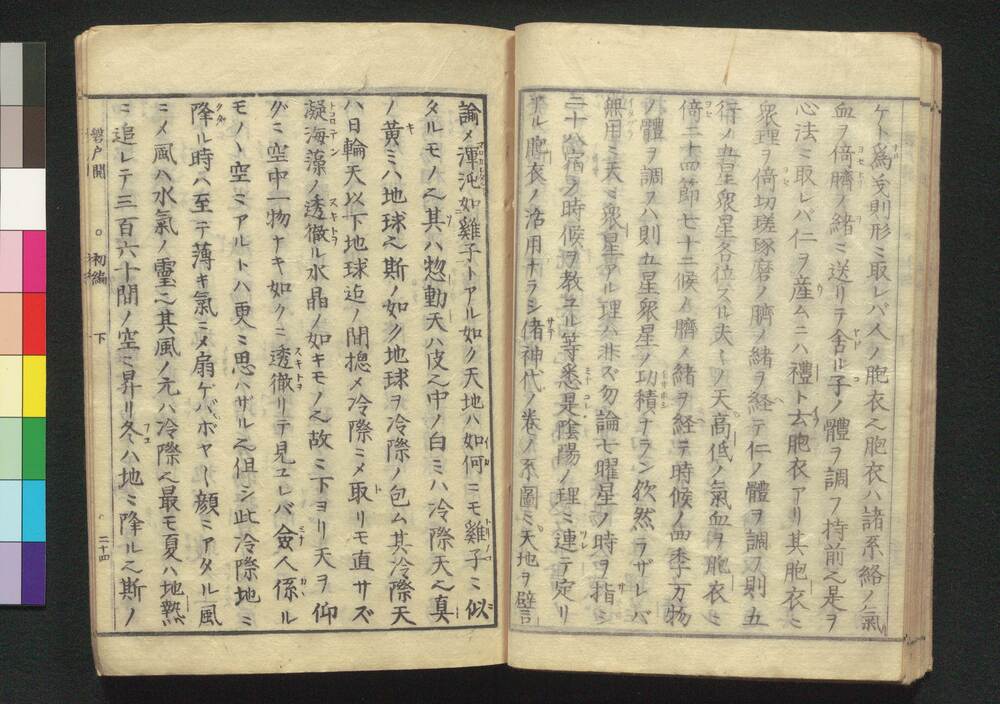 ケト爲ス則形ミ取レバ人ノ胞衣也胞衣ハ諸系絡ノ氣
血ヲ倚臍ノ緒ミ送リテ舎ル子ノ體ヲ調フ持前也是ヲ
心法ミ取レバ仁ヲ産ムニハ禮ト云胞衣アリ其胞衣ミ
衆理ヲ倚切瑳琢磨ノ臍ノ緒ヲ経テ仁ノ體ヲ調フ則五
行ノ五星衆星各位スル夫々ノ天高低ノ氣血ヲ胞衣ミ
倚二十四節七十二候ノ臍ノ緒ヲ経テ時候ノ四季万物
ノ體ヲ調フハ則五星衆星ノ功積ナラン欤然ラザレバ
無用ミ天ミ衆星アル理ハ非ズ勿論七曜星ノ時ヲ指シ
二十八宿ノ時候ヲ教ユル等悉是陰陽ノ理ミ連テ定リ
タル胞衣ノ活用ナラン偖神代ノ巻ノ系圖ミ天地ヲ譬
諭メ渾沌如雞子トアル如ク天地ハ如何ミモ雞子ミ似
タルモノ也其ハ惣動天ハ皮也中ノ白ミハ冷際天也真
ノ黄ミハ地球也斯ノ如ク地球ヲ冷際ノ包ム其冷際天
ハ日輪天以下地球迠ノ間揔メ冷際ミメ取リモ直サズ
凝海藻ノ透徹ル水晶ノ如キモノ也故ミ下ヨリ天ヲ仰
グミ空中一物ナキ如クミ透徹リテ見ユレバ僉人係ル
モノヽ空ミアルトハ更ミ思ハザル也但シ此冷際地ミ
降ル時ハ至テ薄キ氣ミメ扇ゲバボヤ〳〵顔ミアタル風
ミメ風ハ水氣ノ靈也其風ノ元ハ冷際也最モ夏ハ地熱
ミ追レテ三百六十間ノ空ミ昇リ冬ハ地ミ降ル也斯ノ
磐戸開 ○ 初編 下 二十四